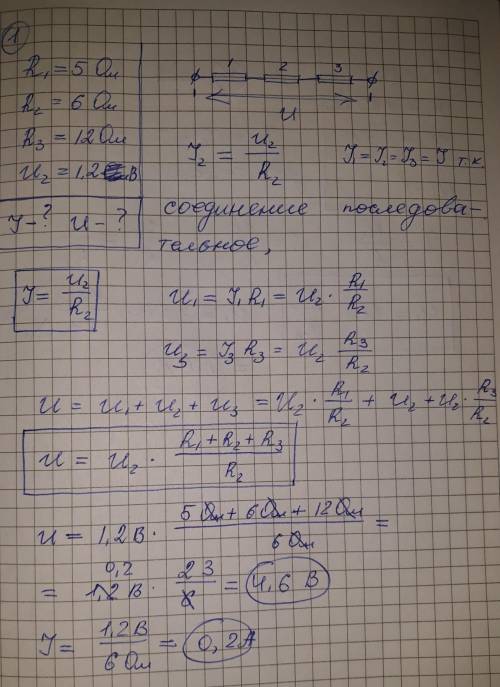 1
R₁ = 5 Ом
R₂ = 6 Ом
R₃ = 12 Ом
U₂ = 1,2 В
J - ? U - ?
1 2 3
U
J₂ = U₂/R₂ J₁ = J₂ = J₃ = J т.к
соединение последова-
тельное,
J = U₂/R₂
U₁ = J₁R₁ = U₂ · R₁/R₂
U₃ = J₃R₃ = U₂ R₃/R₂
U = U₁ + U₂ + U₃ = U₂ · R₁/R₂ + U₂ + U₂ · R₃/R₂
U = U₂ · (R₁ + R₂ + R₃)/R₂
U = 1,2 В · (5 Ом + 6 Ом + 12 Ом)/6 Ом =
0,2
= 1,2 В · 23/6 = 4,6 В
J = 1,2 В/6 Ом = 0,2 А